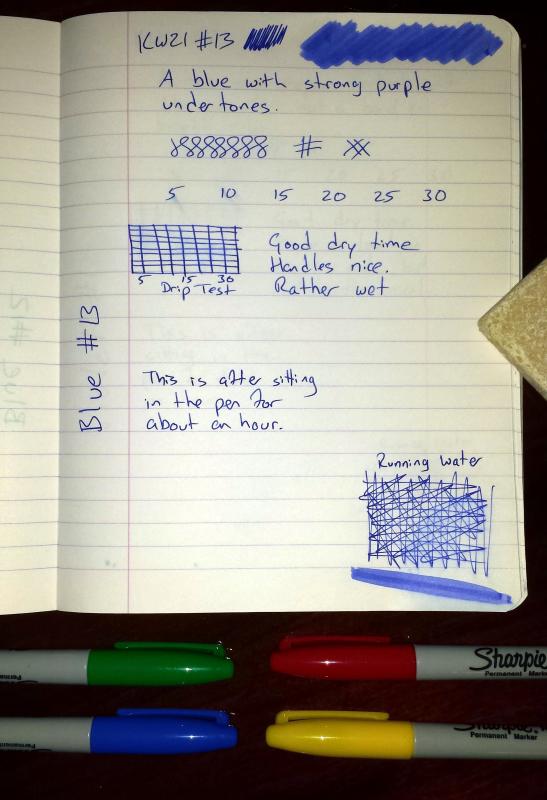 KWZI #13
A blue with strong purple
undertones.
5 10 15 20 25 30
Good dry time
Handles nice.
Rather wet
5 15 30
Drip Test
Blue #13
This is after sitting
in the pen for
about an hour.
Running water
Sharpie
Permanent Marker
Sharpie
Permanent Marker